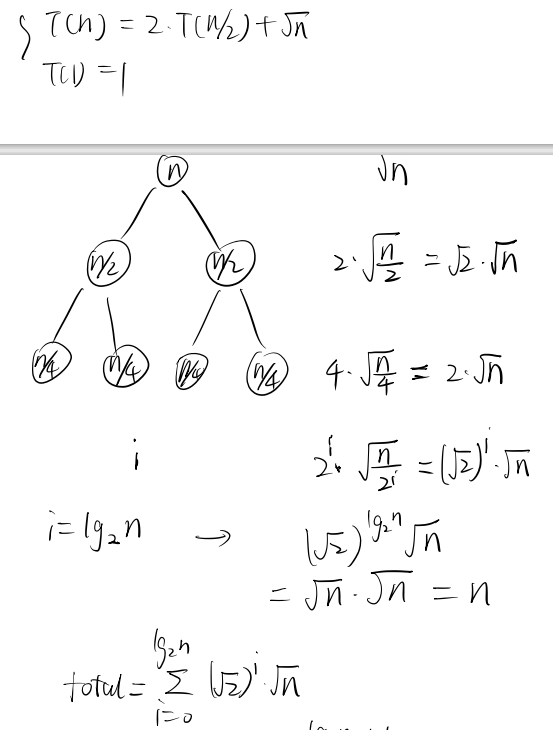 { T(n) = 2·T(n/2) + √n
T(1) = 1
n √n
n/2 n/2 2·√(n/2) = √2·√n
n/4 n/4 n/4 n/4 4·√(n/4) = 2·√n
i 2^i·√(n/2^i) = (√2)^i·√n
i = lg₂n → (√2)^(lg₂n) √n
= √n·√n = n
total = Σ_(i=0)^(lg₂n) (√2)^i·√n